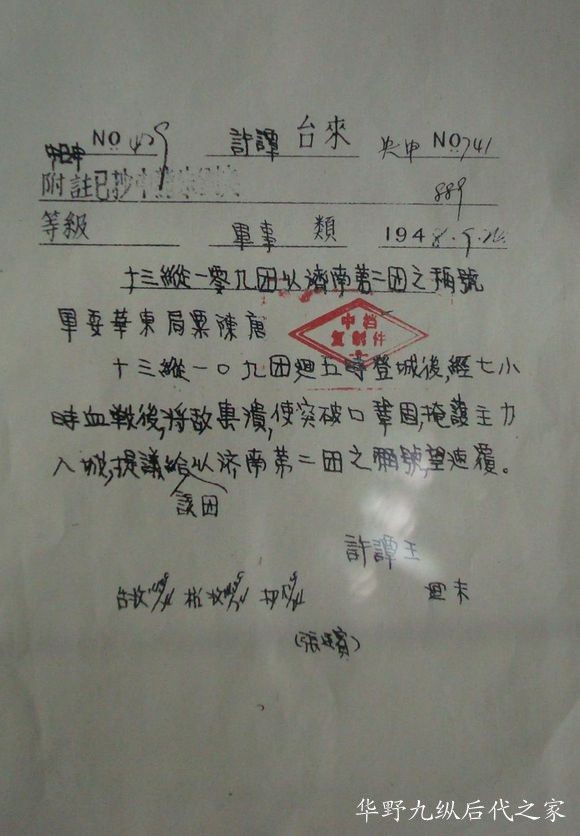 NO 429 許譚 台來 央申 NO 741
附註已抄 889
等級 軍事 類 1948.9.26
十三縱一零九团以濟南第二团之稱號
軍委華東局粟陳唐
中档
复制件
十三縱一〇九团迥五時登城後,經七小
時血戰後,將敌異潰,使突破口鞏固,掩護主力
入城,提議給以济南第二团之稱號,望速覆。
該团
許譚王
迥未
华野九纵后代之家